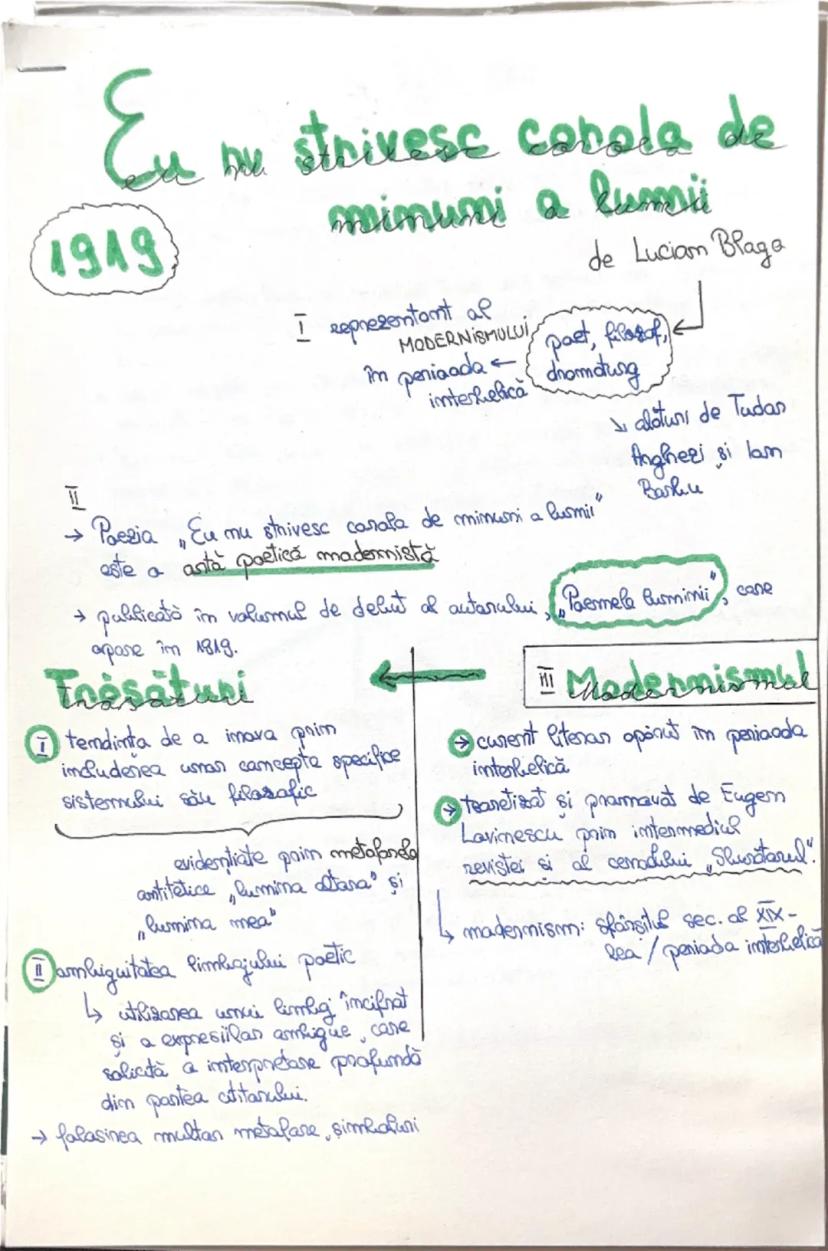 Eu nu strivesc corola de
minuni a lumii
1919
de Lucian Blaga
I reprezentant al
MODERNISMULUI
în perioada
interbelică
poet, filosof,
dramaturg
alături de Tudor
Arghezi și Ion
Barbu
II
→ Poezia „Eu nu strivesc corola de minuni a lumii"
este o artă poetică modernistă
→ publicată în volumul de debut al autorului, „Poemele luminii", care
apare în 1919.
Trăsături
I tendința de a inova prin
includerea unor concepte specifice
sistemului său filosofic
evidențiate prin metaforele
antitetice „lumina altora" și
„lumina mea"
II ambiguitatea limbajului poetic
↳ utilizarea unui limbaj încifrat
și a expresiilor ambigue, care
solicită o interpretare profundă
din partea cititorului.
→ folosirea multor metafore, simboluri
III Modernismul
→ curent literar apărut în perioada
interbelică
→ teoretizat și promovat de Eugen
Lovinescu prin intermediul
revistei și al cenaclului „Sburătorul".
↳ modernism: sfârșitul sec. al XIX-
lea / perioada interbelică